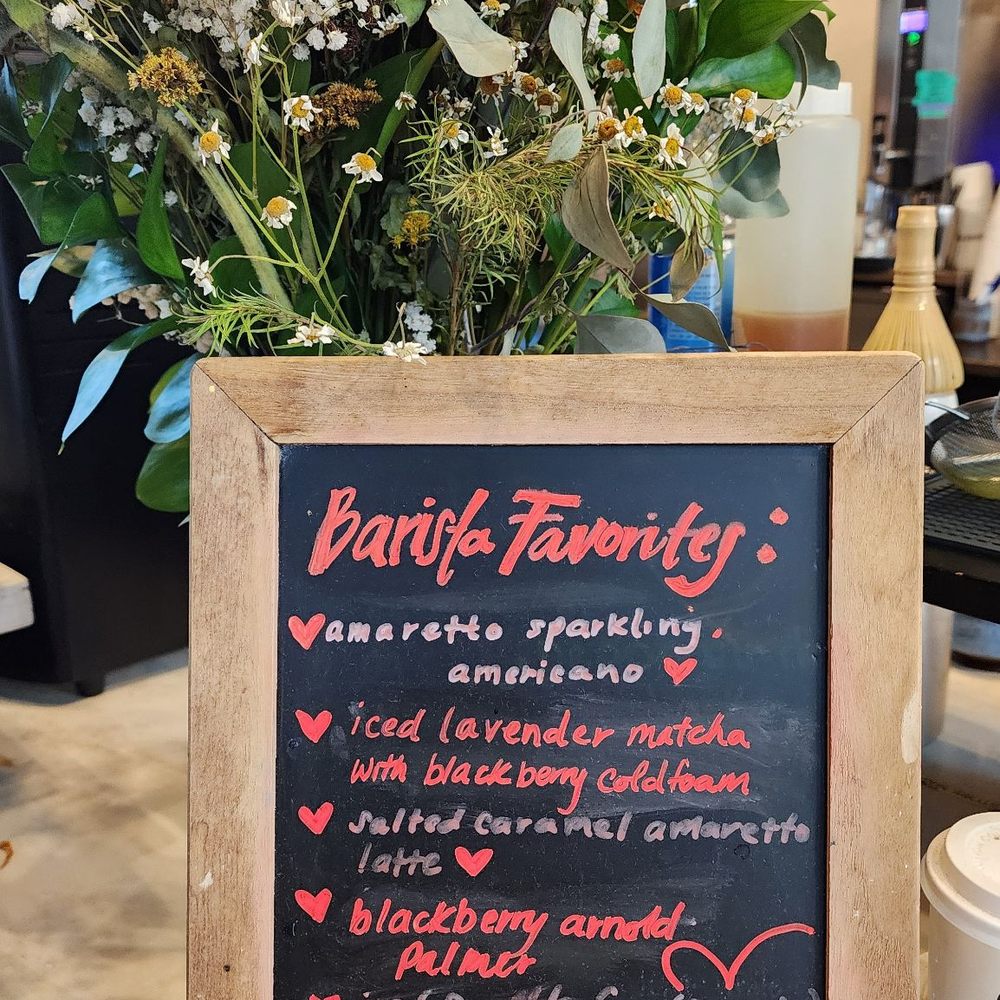 Barista Favorites:
amaretto sparkling
americano
iced lavender matcha
with blackberry coldfoam
salted caramel amaretto
latte
blackberry arnold
Palmer